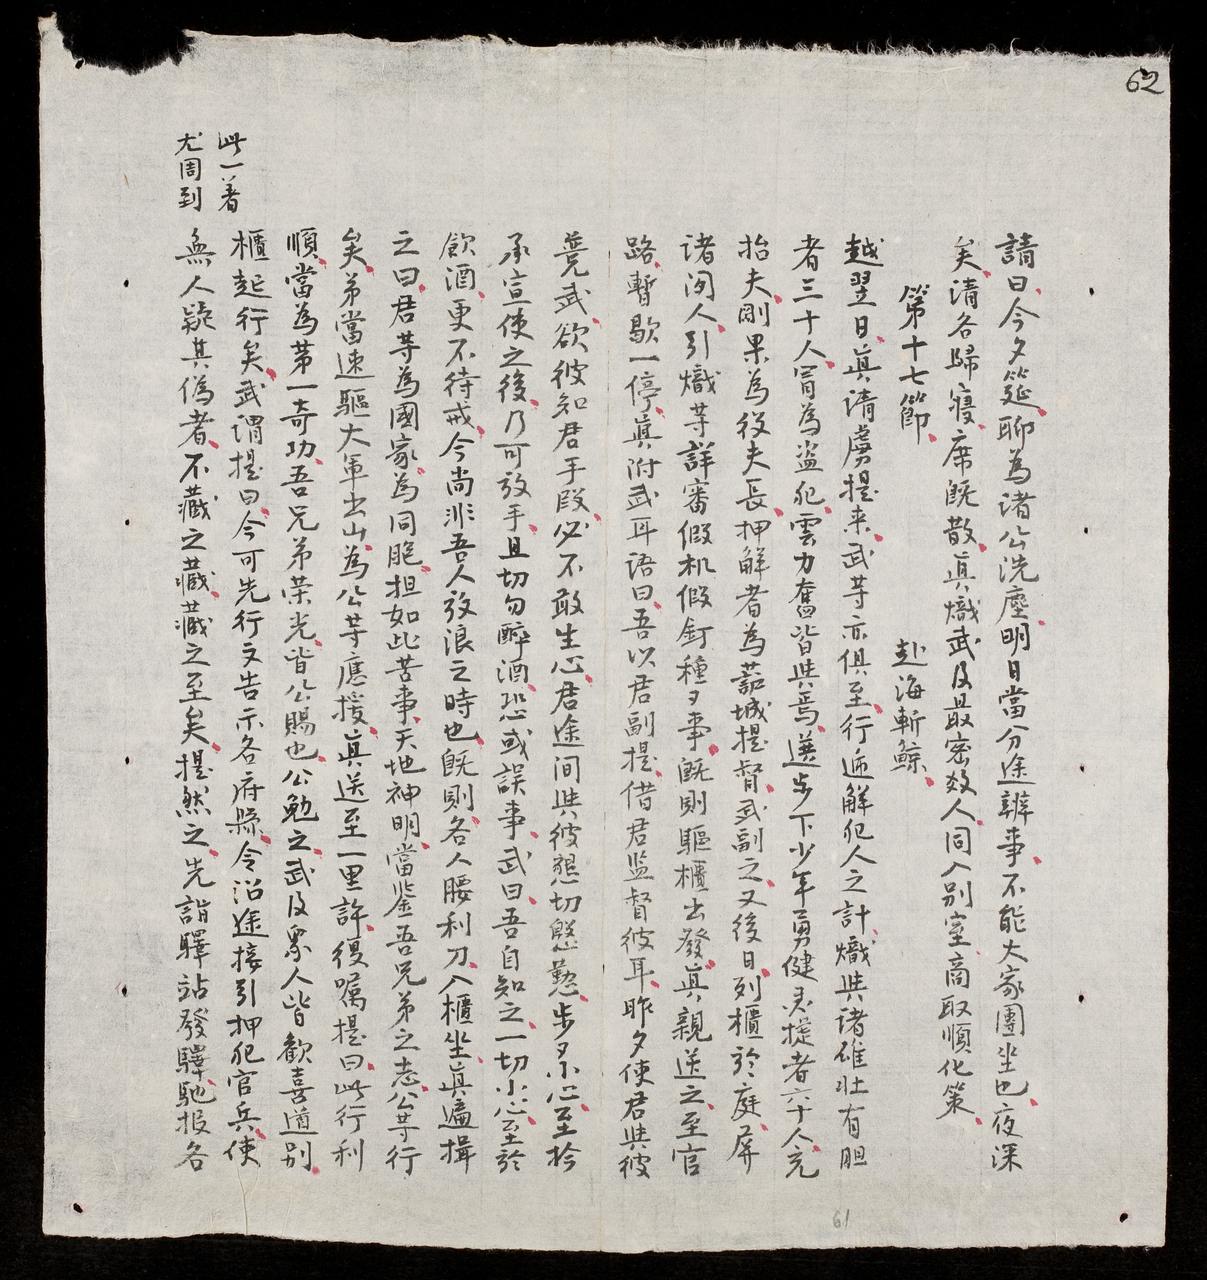 62
請曰今夕筵聊為諸公洗塵明日當分途辦事不能大家團坐也夜深
矣請各歸寢席既散真熾武及最密数人同入別室商取順化策
第十七節 赴海斬鯨
越翌日真請虜提来武等亦俱至行遞解犯人之計熾與諸雄壯有胆
者三十人冒為盜犯雲力奮皆與焉選步下少年勇健灵提者六十人充
抬夫剛果為役夫長押解者為嘉城提督武副之又後日列櫃於庭屏
諸闲人引熾等詳審假机假釘種々事既則驅櫃出發真親送之至官
路暫歇一停真附武耳语曰吾以君副提借君监督彼耳昨夕使君與彼
競武欲彼知君手段必不敢生心君途间與彼懇切慇懃步々小心至於
承宣使之後乃可放手且切勿醉酒恐或誤事武曰吾自知之一切小心至於
飲酒更不待戒今尚非吾人放浪之時也既則各人腰利刀入櫃坐真遍揖
之曰君等為國家為同胞担如此苦事天地神明當鉴吾兄弟之志公等行
矣弟當速驅大軍出山為公等應援真送至一里許復嘱提曰此行利
順當為第一奇功吾兄弟荣光皆公賜也公勉之武及眾人皆歡喜道別
櫃起行矣武谓提曰今可先行文告示各府縣令沿途接引押犯官兵使
無人疑其偽者不藏之藏藏之至矣提然之先詣驛站發驛馳报各
此一著
尤周到
61